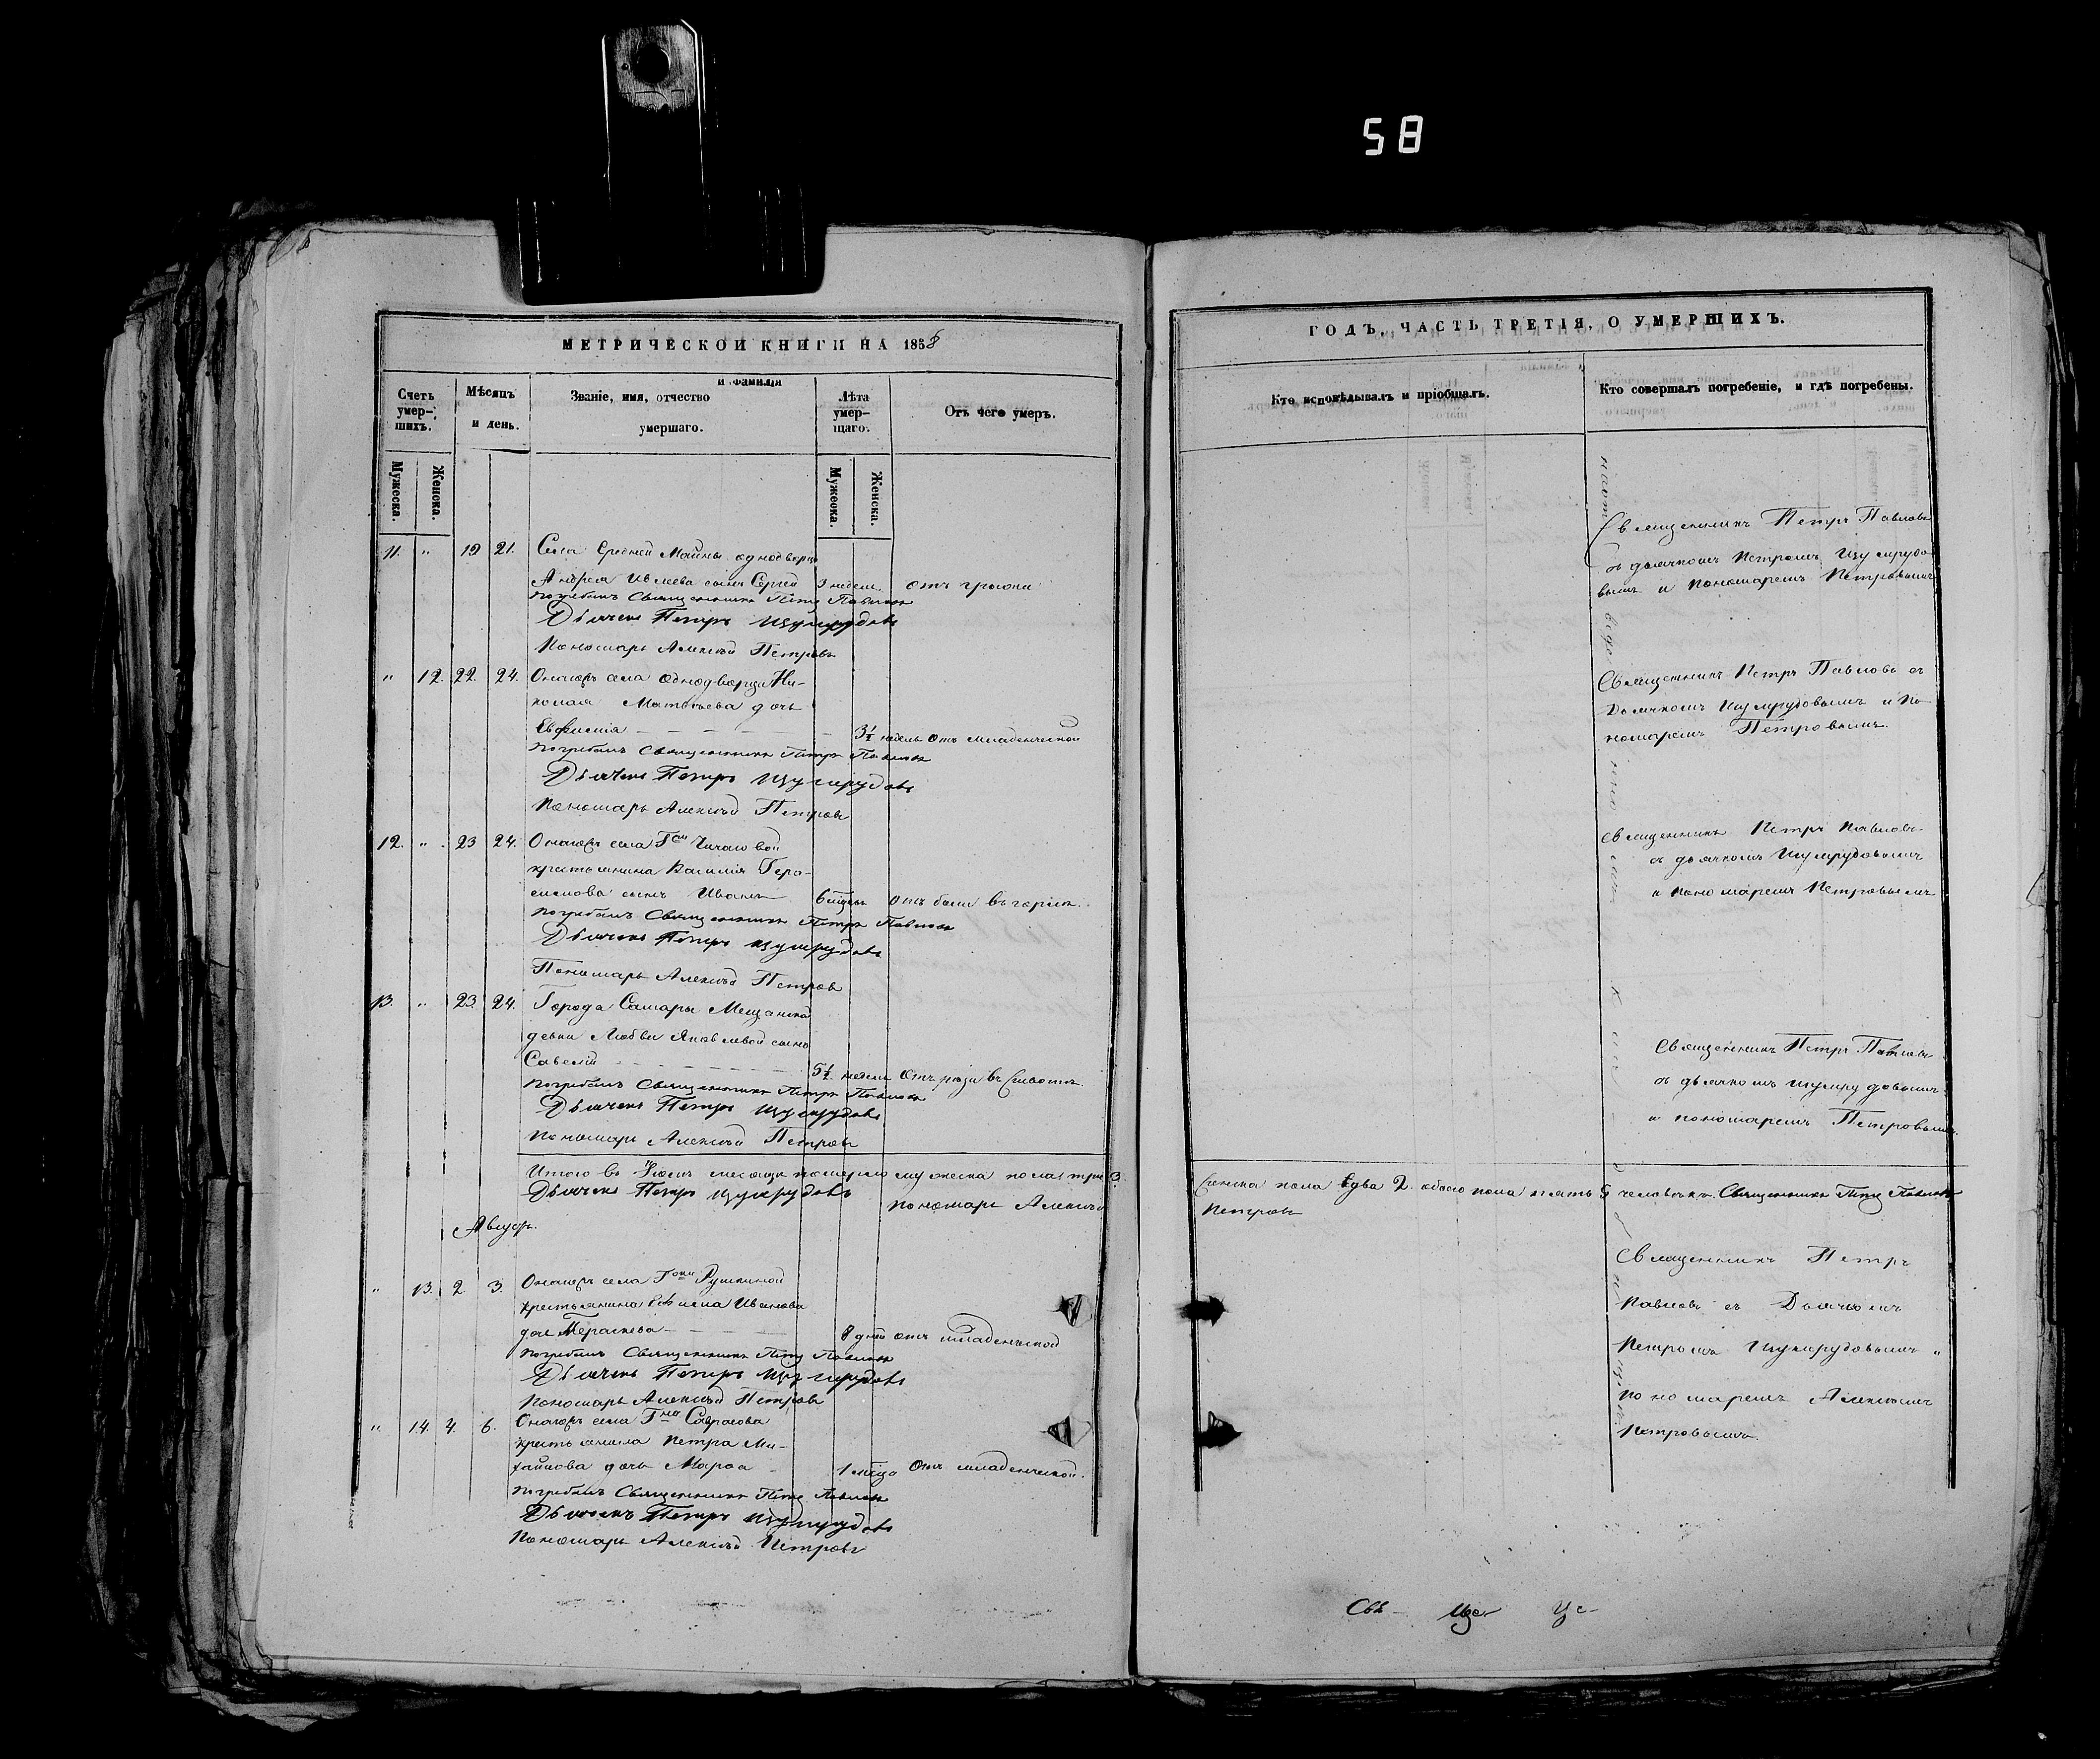 58
МЕТРИЧЕСКОЙ КНИГИ НА 1858
ГОДЪ, ЧАСТЬ ТРЕТІЯ, О УМЕРШИХЪ.
Счетъ умер-шихъ.
Мужеска.
Женска.
Мѣсяцъ и день.
и фамилія
Званіе, имя, отчество
умершаго.
Лѣта умер-шаго.
Мужеска.
Женска.
Отъ чего умеръ.
Кто исповѣдывалъ и пріобщалъ.
Кто совершалъ погребеніе, и гдѣ погребены.
11. " 19 21. Села Средней Майны однодворца
Андрея Ивлева сынъ Сергей 9 недель отъ грыжи
погребалъ Священникъ Петръ Павловъ
Дьячекъ Петръ Изумрудовъ
Пономарь Алексѣй Петровъ
Священникъ Петръ Павловъ
съ дьячкомъ Петромъ Изумрудо-
вымъ и пономаремъ Петровымъ
" 12. 22. 24. Онагожъ села однодворца Ни-
колая Матвѣева дочь
Евфимія 3½ недель отъ младенческой
погребалъ Священникъ Петръ Павловъ
Дьячекъ Петръ Изумрудовъ
Пономарь Алексѣй Петровъ
Священникъ Петръ Павловъ съ
Дьячкомъ Изумрудовымъ и По-
номаремъ Петровымъ.
12. " 23 24. Онагожъ села Гжи
крестьянина Василія Гера-
симова сынъ Иванъ 6 отъ боли въ горлѣ.
погребалъ Священникъ Петръ Павловъ
Дьячекъ Петръ Изумрудовъ
Пономарь Алексѣй Петровъ
Священникъ Петръ Павловъ
съ дьячкомъ Изумрудовымъ
и пономаремъ Петровымъ
13. " 23 24. Города Самары Мещанской
девки Любви Яковлевой сынъ
Савелій 5½ недель Отъ рези въ животѣ.
погребалъ Священникъ Петръ Павловъ
Дьячекъ Петръ Изумрудовъ
Пономарь Алексѣй Петровъ
Священникъ Петръ Павловъ
съ дьячкомъ Изумрудовымъ
и пономаремъ Петровымъ.
Итого въ Іюлѣ месяце померло мужеска пола три 3.
женска пола два 2. обоего пола пять 5 человѣкъ. Священникъ Петръ Павловъ
Дьячекъ Петръ Изумрудовъ
пономарь Алексѣй
Петровъ
Августъ.
" 13. 2 3. Онагожъ села Гжи
крестьянина Ефима Иванова
дочь 8 дней отъ младенческой
погребалъ Священникъ Петръ Павловъ
Дьячекъ Петръ Изумрудовъ
Пономарь Алексѣй Петровъ
Священникъ Петръ
Павловъ съ Дьячкомъ
Петромъ Изумрудовымъ и
пономаремъ Алексѣемъ
Петровымъ.
" 14. 4. 6. Онагожъ села Гна Саврасова
крестьянина Петра Ми-
хайлова дочь Марѳа 1 мѣсяца Отъ младенческой.
погребалъ Священникъ Петръ Павловъ
Дьячекъ Петръ Изумрудовъ
Пономарь Алексѣй Петровъ